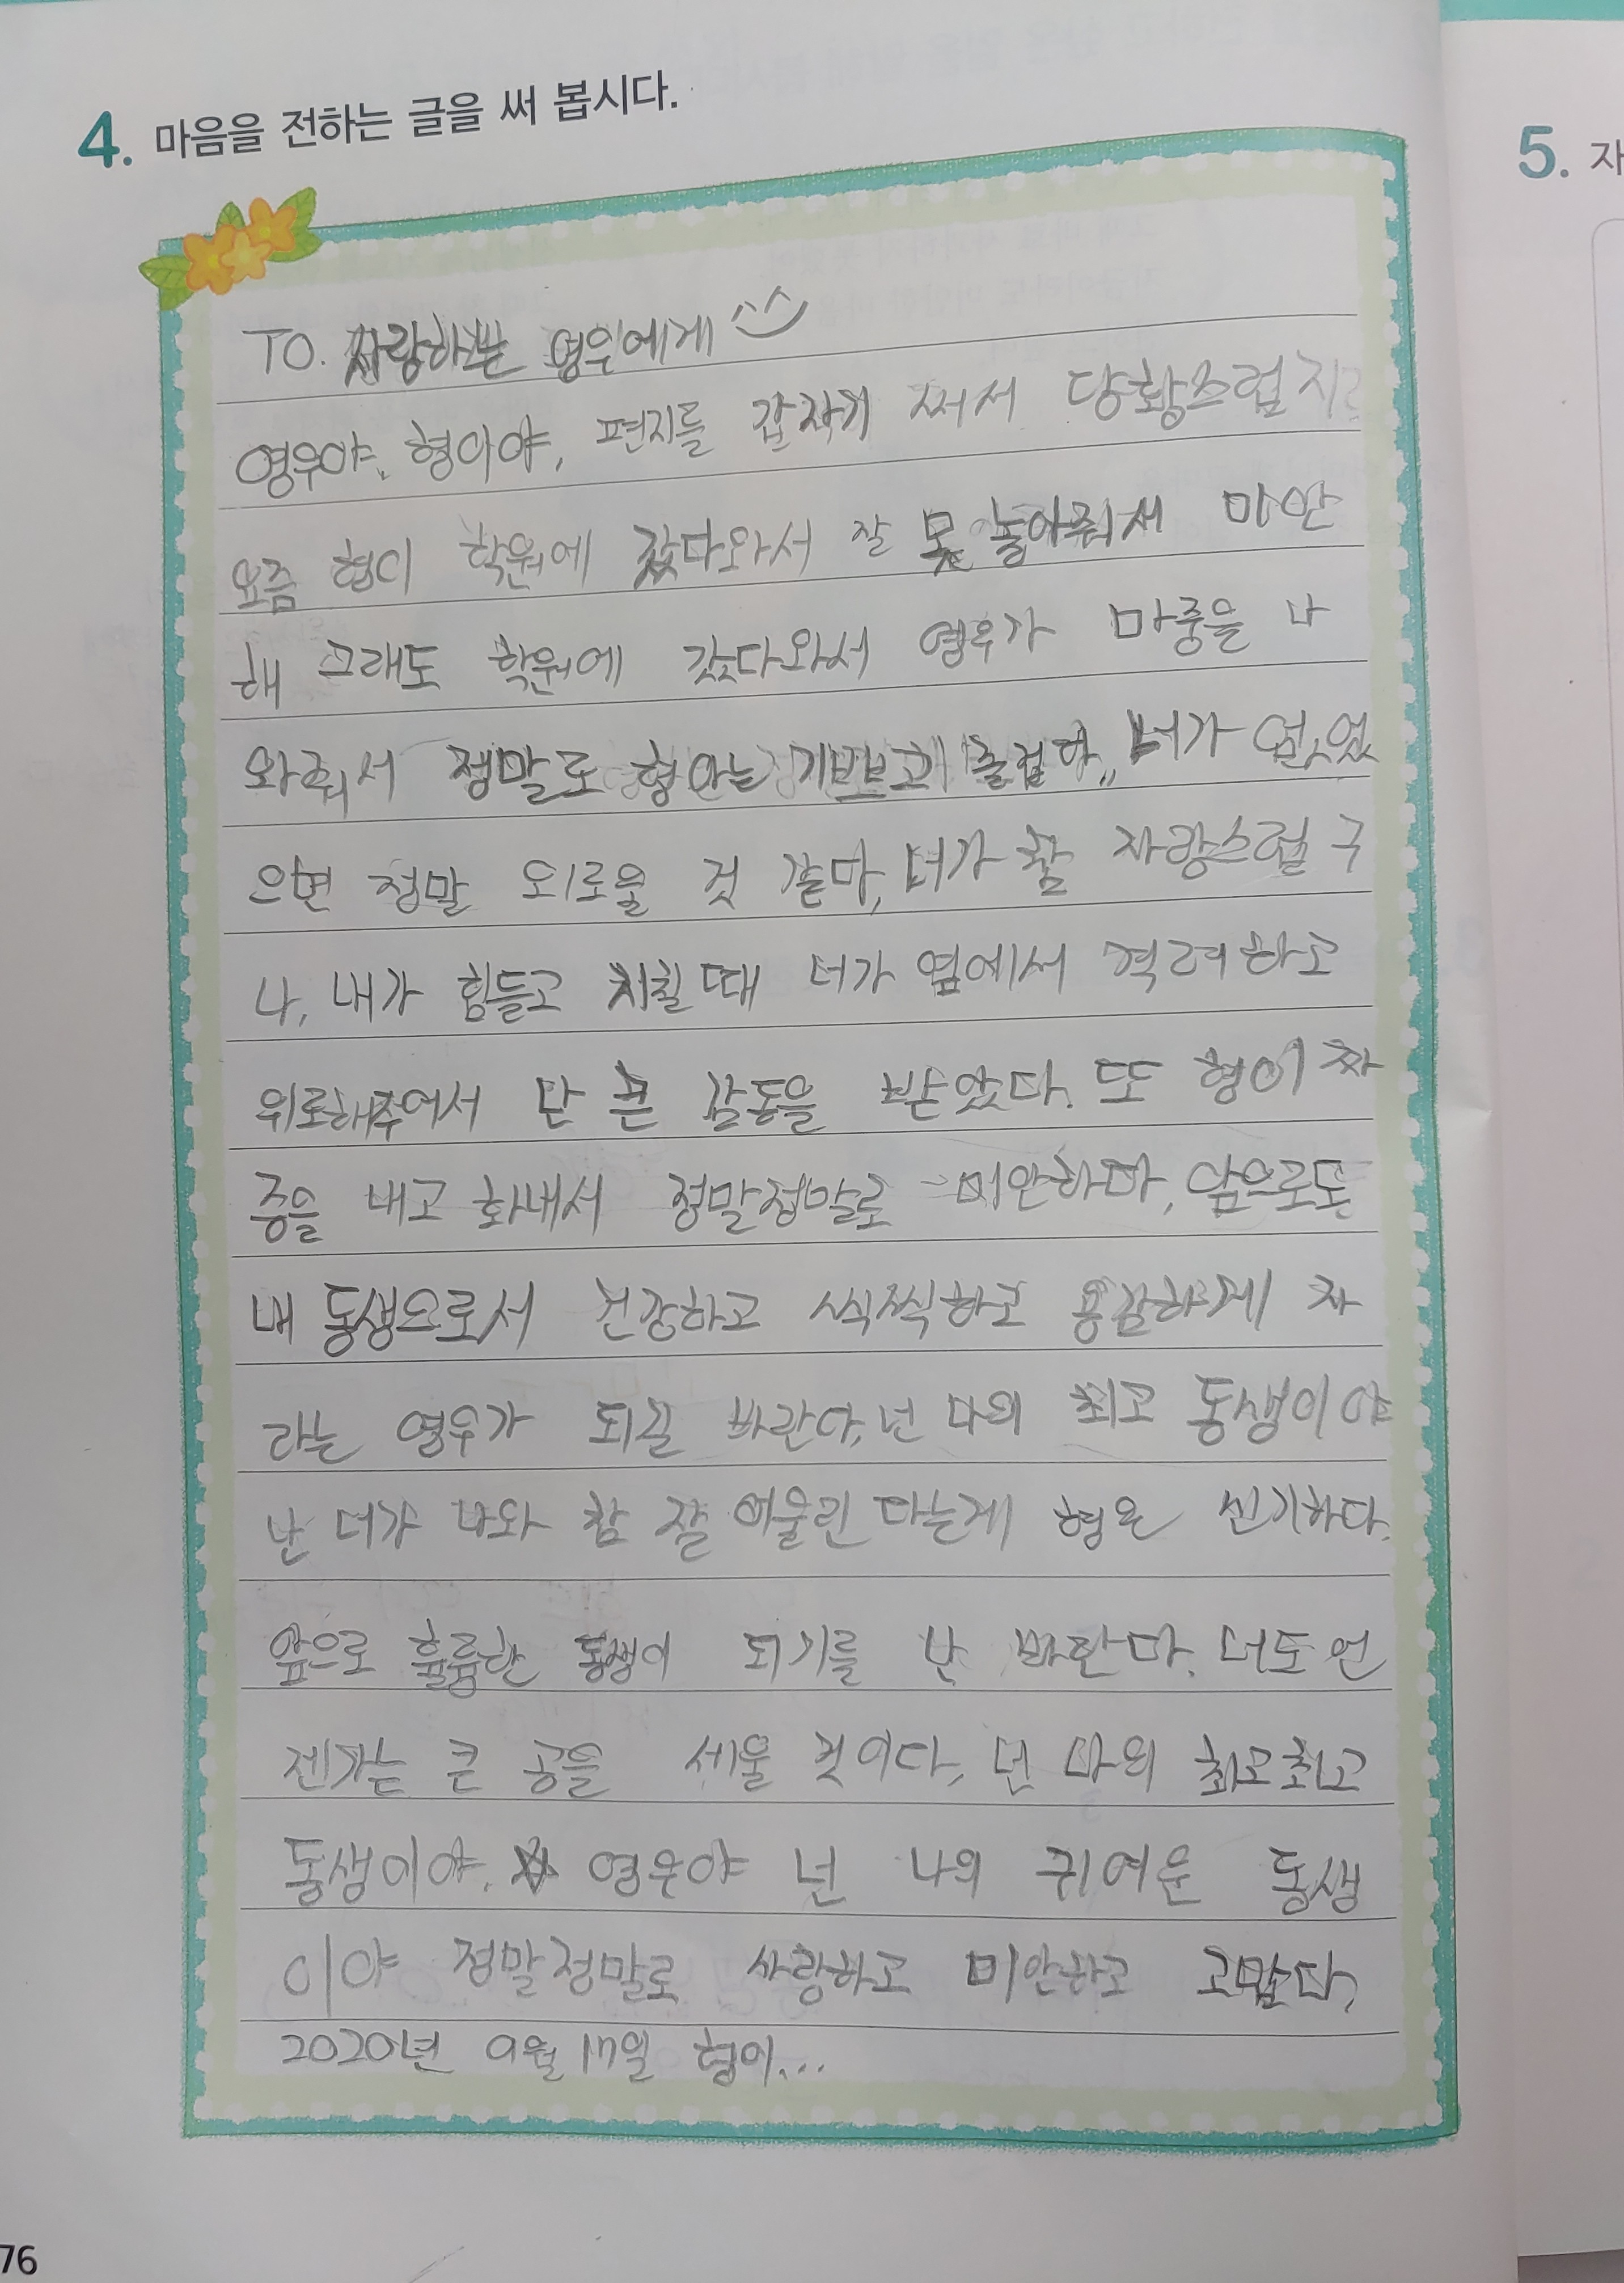 4. 마음을 전하는 글을 써 봅시다.
TO. 사랑하는 영우에게
영우야. 형아야, 편지를 갑자기 써서 당황스럽지?
요즘 형이 학원에 갔다와서 잘 못 놀아줘서 미안
해 그래도 학원에 갔다와서 영우가 마중을 나
와줘서 정말로 형아는 기쁘고 즐겁다,, 너가 없었
으면 정말 외로울 것 같다, 너가 참 자랑스럽구
나, 내가 힘들고 지칠 때 너가 옆에서 격려하고
위로해주어서 난 큰 감동을 받았다. 또 형이 짜
증을 내고 화내서 정말정말로 미안하다, 앞으로도
내 동생으로서 건강하고 씩씩하고 용감하게 자
라는 영우가 되길 바란다, 넌 나의 최고 동생이야
난 너가 나와 참 잘 어울린다는게 형은 신기하다.
앞으로 훌륭한 동생이 되기를 난 바란다. 너도 언
젠가는 큰 공을 세울 것이다, 넌 나의 최고최고
동생이야. 영우야 넌 나의 귀여운 동생
이야 정말정말로 사랑하고 미안하고 고맙다,
2020년 9월 17일 형이...
76
5. 자